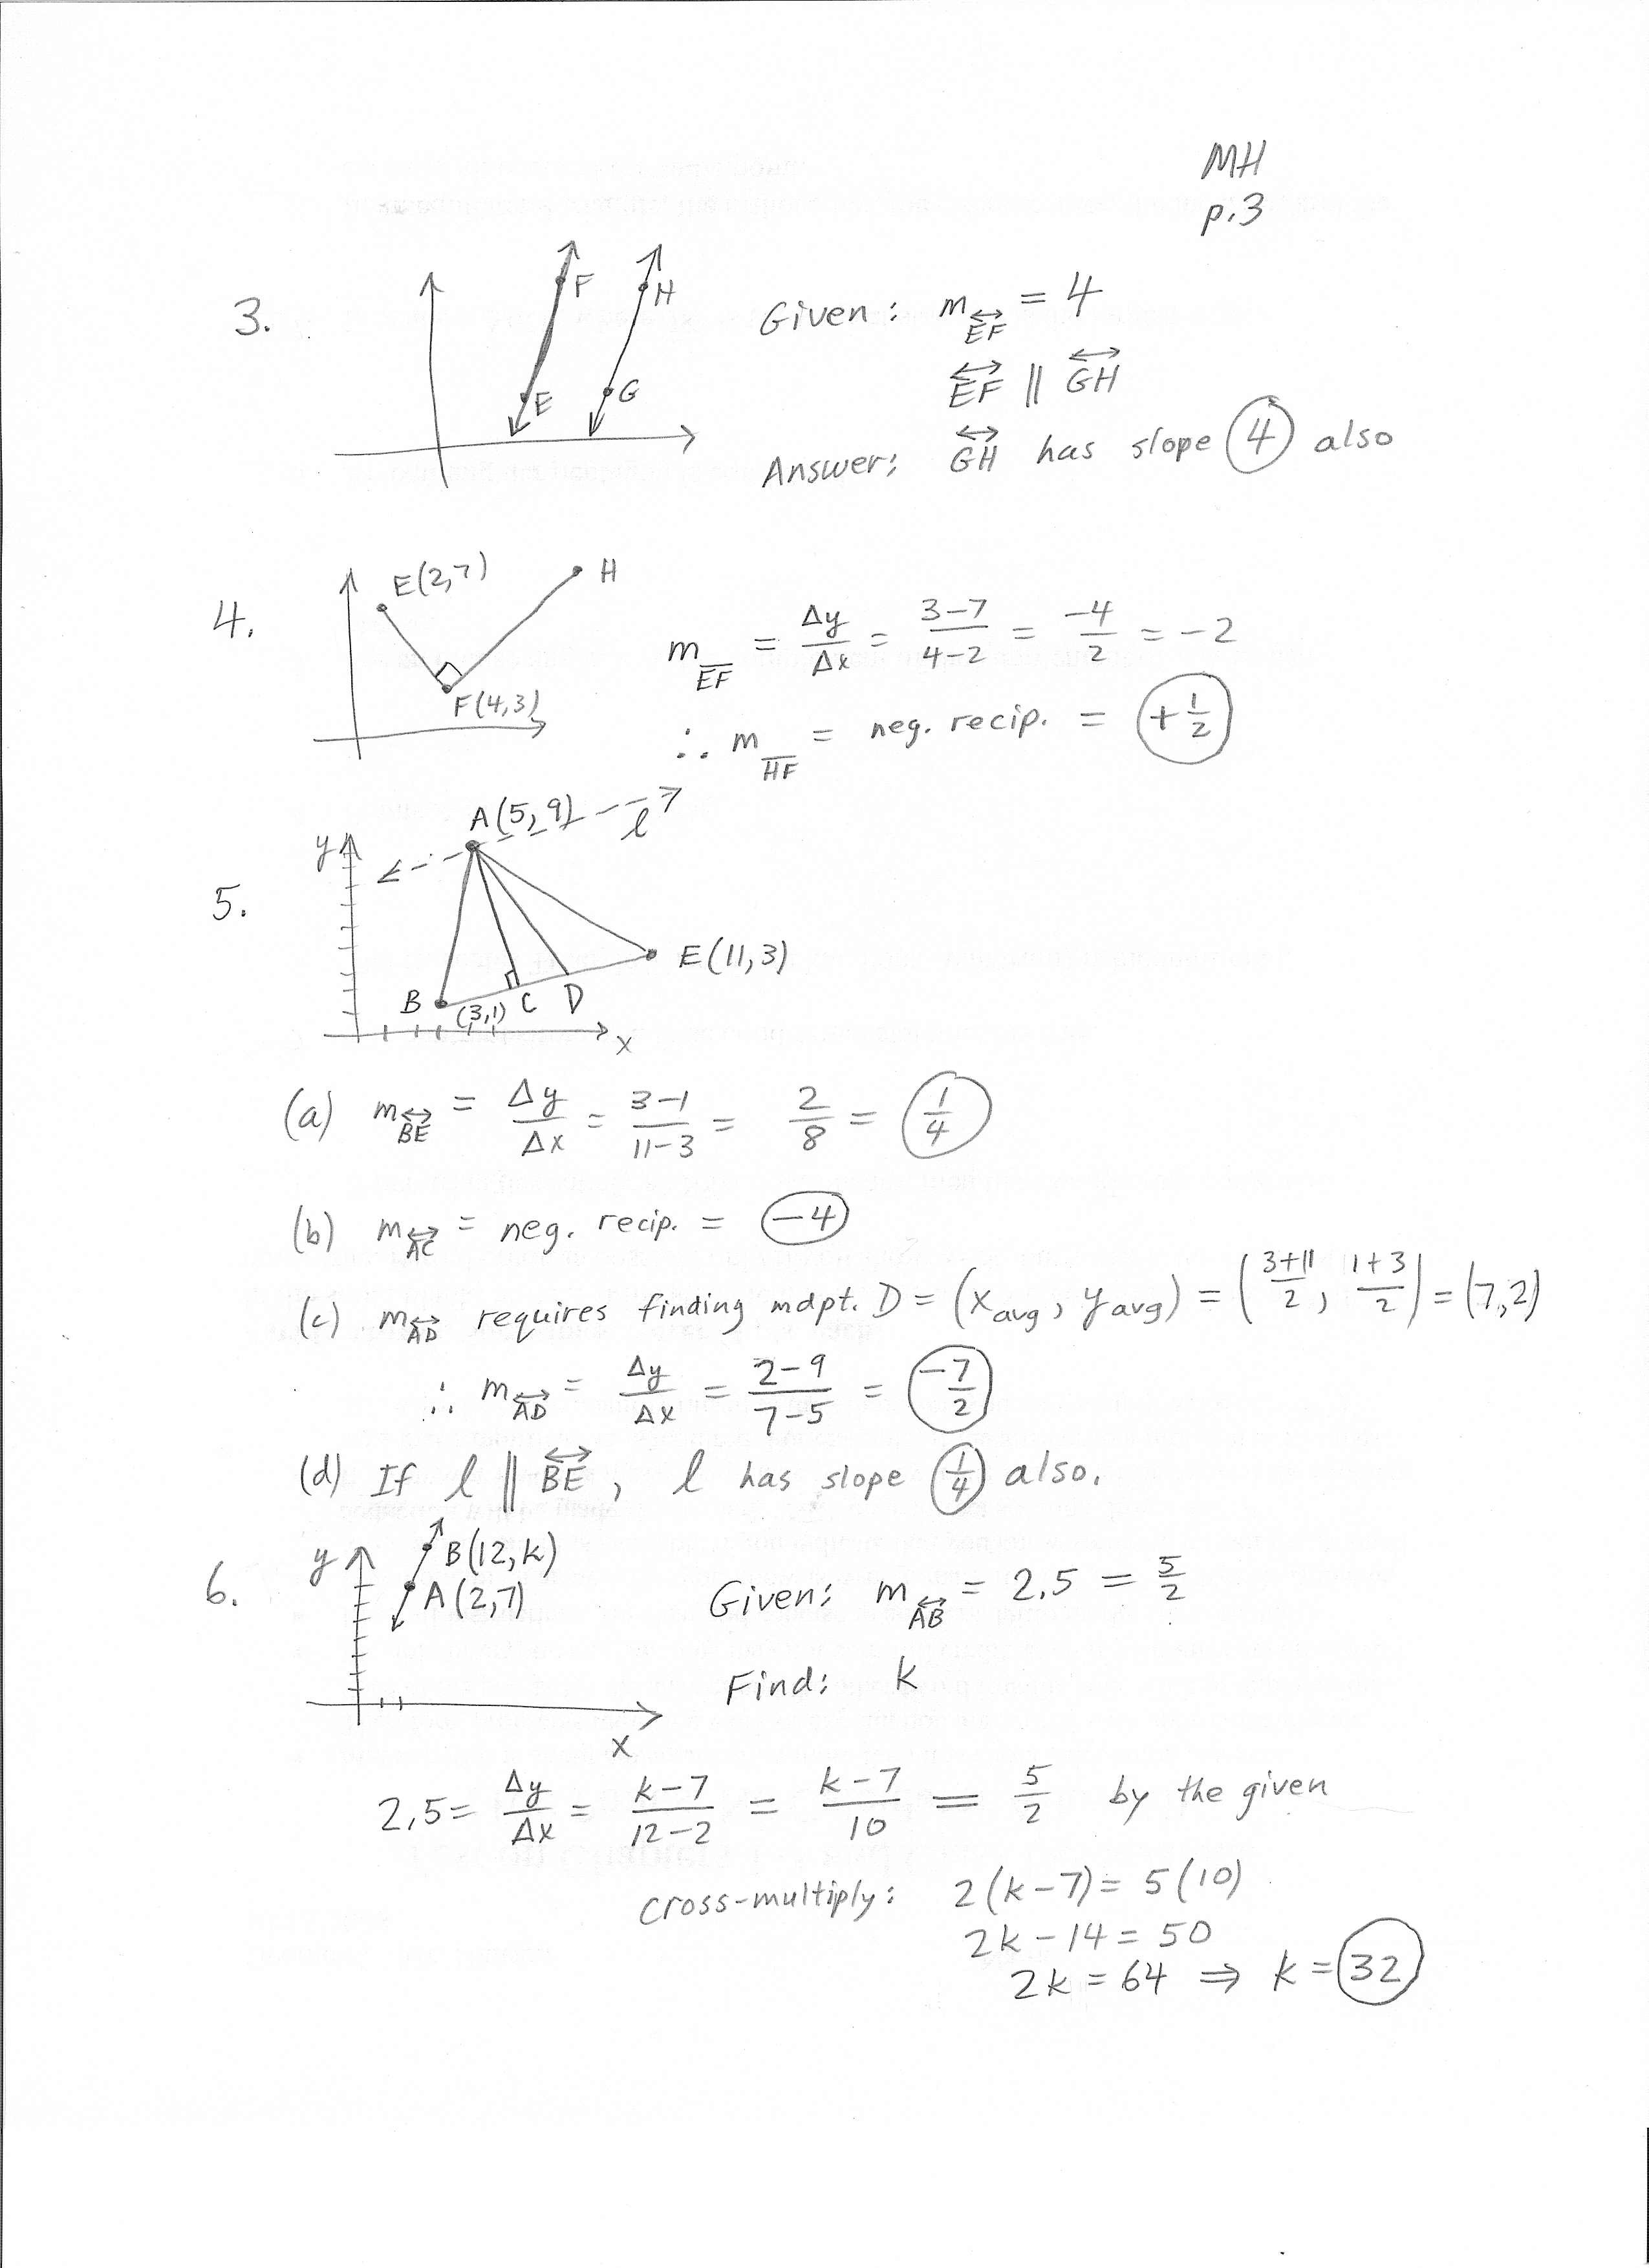 MH
p.3
3.
F
H
E
G
Given: m EF = 4
EF ∥ GH
Answer: GH has slope 4 also
4.
E(2,7)
H
F(4,3)
m EF = Δy/Δx = 3-7/4-2 = -4/2 = -2
∴ m HF = neg. recip. = +1/2
5.
y
A(5,9)
l
E(11,3)
B
(3,1)
C
D
x
(a) m BE = Δy/Δx = 3-1/11-3 = 2/8 = 1/4
(b) m AC = neg. recip. = -4
(c) m AD requires finding mdpt. D = (x avg, y avg) = (3+11/2, 1+3/2) = (7,2)
∴ m AD = Δy/Δx = 2-9/7-5 = -7/2
(d) If l ∥ BE, l has slope 1/4 also.
6.
y
B(12,k)
A(2,7)
x
Given: m AB = 2.5 = 5/2
Find: k
2.5 = Δy/Δx = k-7/12-2 = k-7/10 = 5/2 by the given
cross-multiply: 2(k-7) = 5(10)
2k-14 = 50
2k = 64 ⇒ k = 32